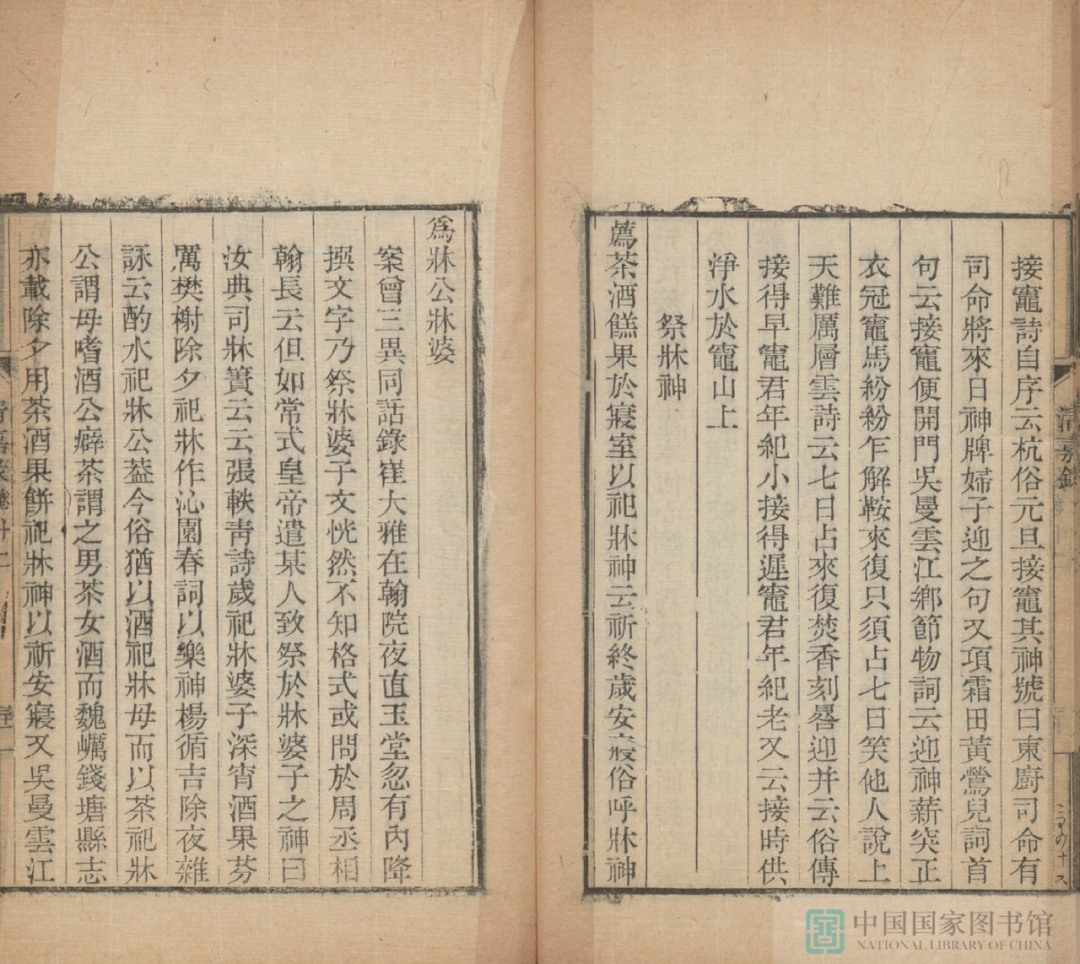 接竈詩自序云杭俗元旦接竈其神號曰東廚司命有
司命將來日神牌婦子迎之句又項霜田黃鶯兒詞首
句云接竈便開門吳曼雲江鄉節物詞云迎神薪突正
衣冠竈馬紛紛乍解鞍來復只須占七日笑他人說上
天難厲層雲詩云七日占來復焚香刻晷迎并云俗傳
接得早竈君年紀小接得遲竈君年紀老又云接時供
淨水於竈山上
祭牀神
薦茶酒餻果於寢室以祀牀神云祈終歲安寢俗呼牀神
爲牀公牀婆
案曾三異同話錄崔大雅在翰院夜直玉堂忽有內降
撰文字乃祭牀婆子文恍然不知格式或問於周丞相
翰長云但如常式皇帝遣某人致祭於牀婆子之神曰
汝典司牀簀云云張軼青詩歲祀牀婆子深宵酒果芬
厲樊榭除夕祀牀作沁園春詞以樂神楊循吉除夜雜
詠云酌水祀牀公葢今俗猶以酒祀牀母而以茶祀牀
公謂母嗜酒公癖茶謂之男茶女酒而魏㟲錢塘縣志
亦載除夕用茶酒果餅祀牀神以祈安寢又吳曼雲江
清嘉錄
卷十二
中国国家图书馆
NATIONAL LIBRARY OF CHINA